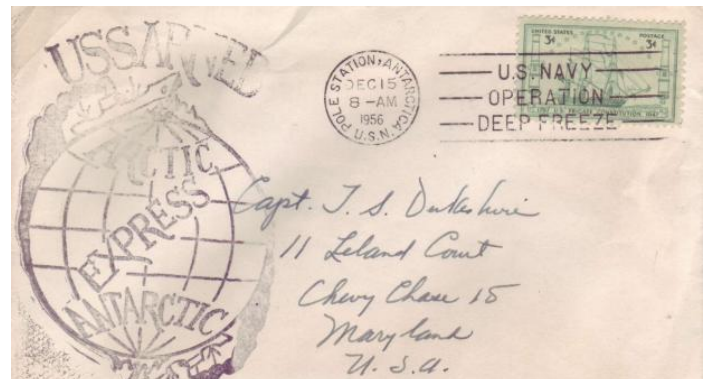 USS ARNEB
ARCTIC
EXPRESS
ANTARCTIC
POLE STATION, ANTARCTICA
DEC 15
8-AM
1956
U.S.N.
U.S. NAVY
OPERATION
DEEP FREEZE
UNITED STATES POSTAGE
3¢ 3¢
Capt. T. S. Dukeshire
11 Leland Court
Chevy Chase 15
Maryland
U.S.A.